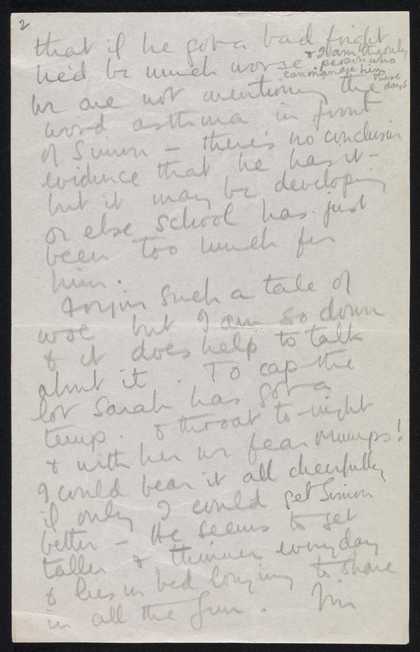 2
that if he got a bad fright
he'd be much worse. & I am the only person who can manage him these days
We are not mentioning the
word asthma in front
of Simon – there's no conclusive
evidence that he has it –
but it may be developing
or else school has just
been too much for
him.
Forgive such a tale of
woe but I am so down
& it does help to talk
about it. To cap the
lot Sarah has got a
temp. & throat to-night
& with her we fear Mumps!
I could bear it all cheerfully
if only I could get Simon
better – He seems to get
taller & thinner everyday
& lies in bed longing to share
in all the fun.